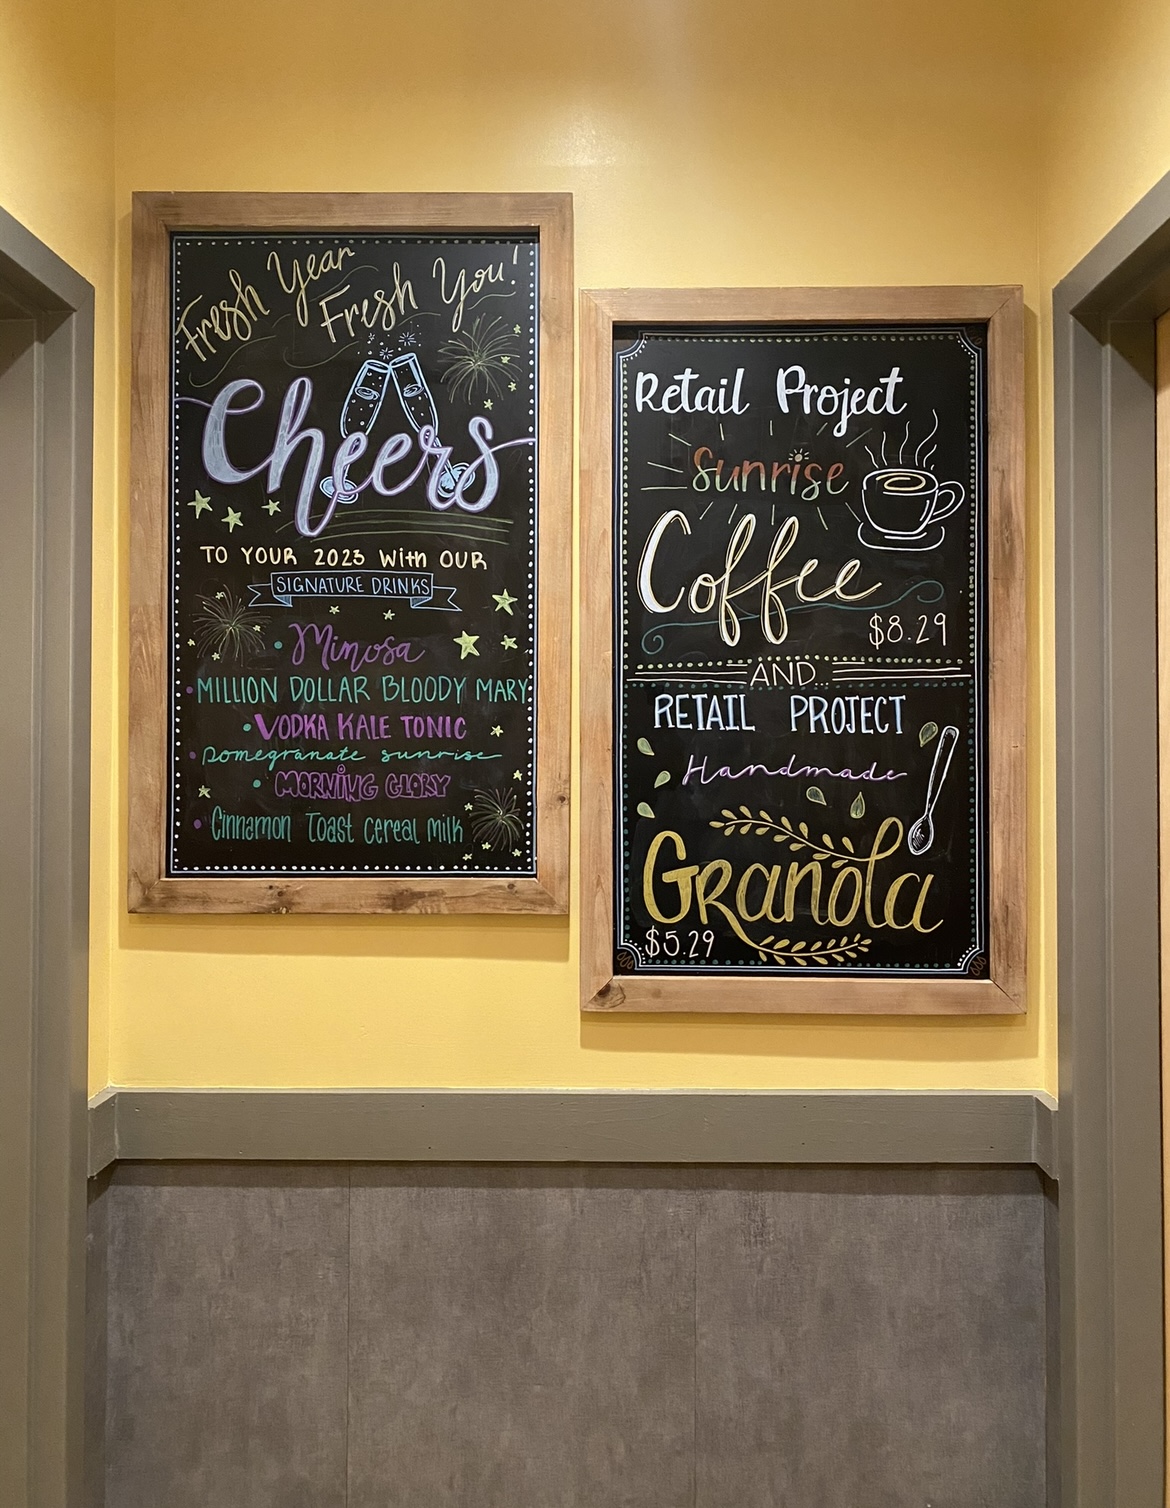 Fresh Year
Fresh You!
Cheers
TO YOUR 2023 with OUR
SIGNATURE DRINKS
• Mimosa
• MILLION DOLLAR BLOODY MARY
• VODKA KALE TONIC
• Pomegranate sunrise
• MORNING GLORY
• Cinnamon Toast Cereal Milk
Retail Project
Sunrise
Coffee
$8.29
AND...
RETAIL PROJECT
Handmade
GRanola
$5.29